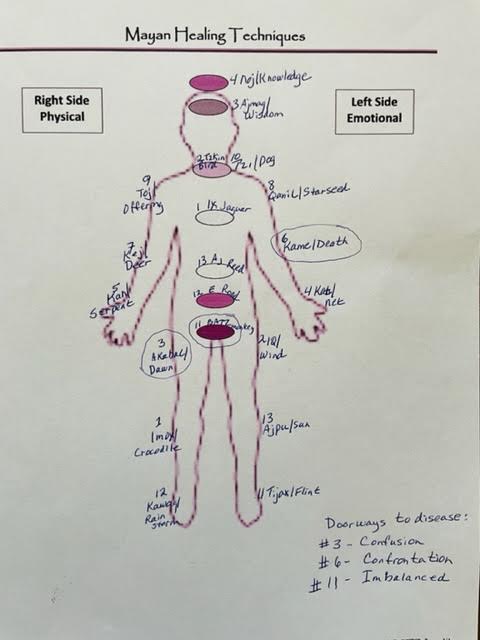 Mayan Healing Techniques
4 Noj/Knowledge
3 Ajmaq/
Wisdom
Right Side
Physical
Left Side
Emotional
2 Tzkin
Bird
10
Tzi/Dog
9
Toj/
Offering
8
Qanil/Starseed
1 IX Jaguar
6
Kame/Death
7
Kej/
Deer
13 Aj Reed
5
Kan/
Serpent
4 Kat/
net
12 E Road
11 BATZ monkey
3
AKabal/
Dawn
2 IQ/
Wind
1
Imox/
Crocodile
13
Ajpu/Sun
12
Kawoq/
Rain
Storm
11 Tijax/Flint
Doorways to disease:
#3 - Confusion
#6 - Confrontation
#11 - Imbalanced